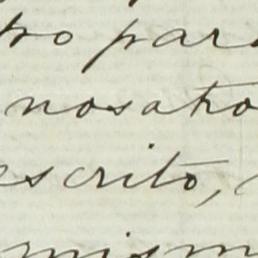 po para
nosotro
escrito,
mism